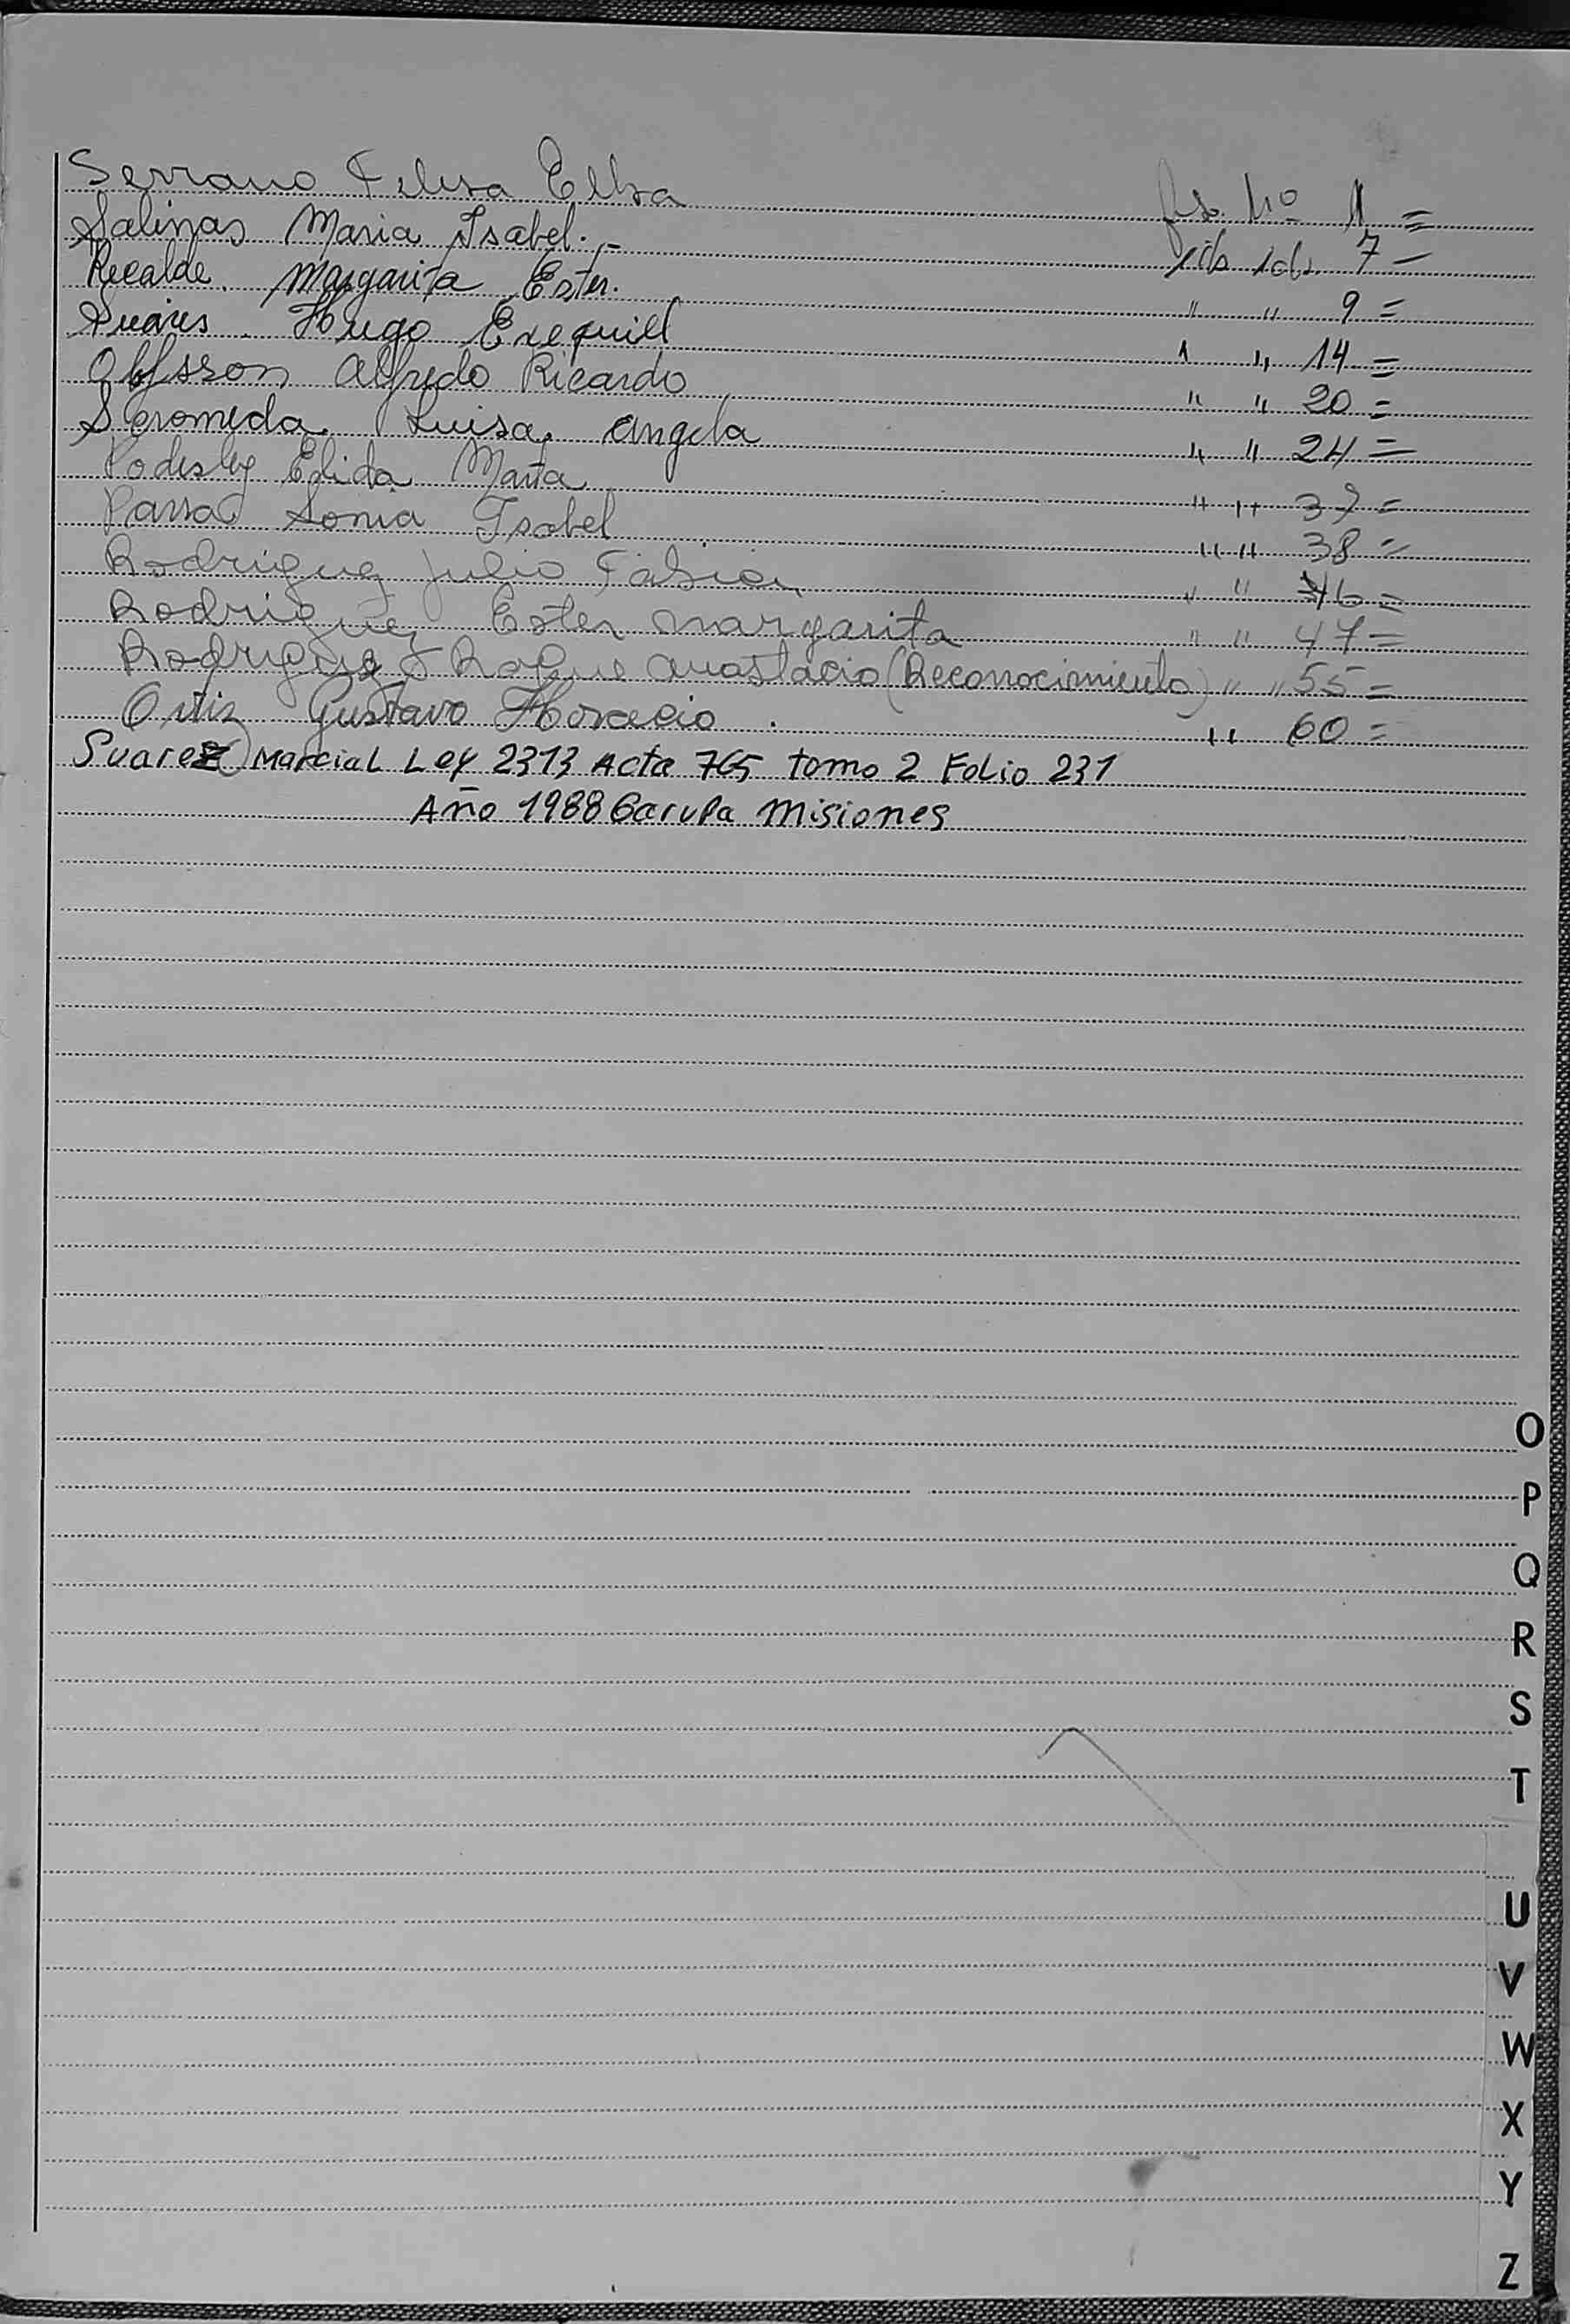 Serrano Felisa Elba fs. Nº 1 =
Salinas Maria Isabel.- id. id. 7 -
Recalde. Margarita Ester. " " 9 =
Suáres. Hugo Exequiel " " 14 =
Alfredo Ricardo " " 20 =
Luisa. Angela " " 24 =
Elida Marta " " =
Sonia Isabel " " 38 =
Rodriguez Julio Fabian " " 46 =
Rodriguez Ester Margarita " " 47 =
Rodriguez Roque Anastacio (Reconocimiento) " " 55 =
Ortiz Gustavo Horacio. " 60 =
Suarez Marcial Ley 2313 Acta 765 tomo 2 Folio 231
Año 1988 Garupa Misiones
O
P
Q
R
S
T
U
V
W
X
Y
Z